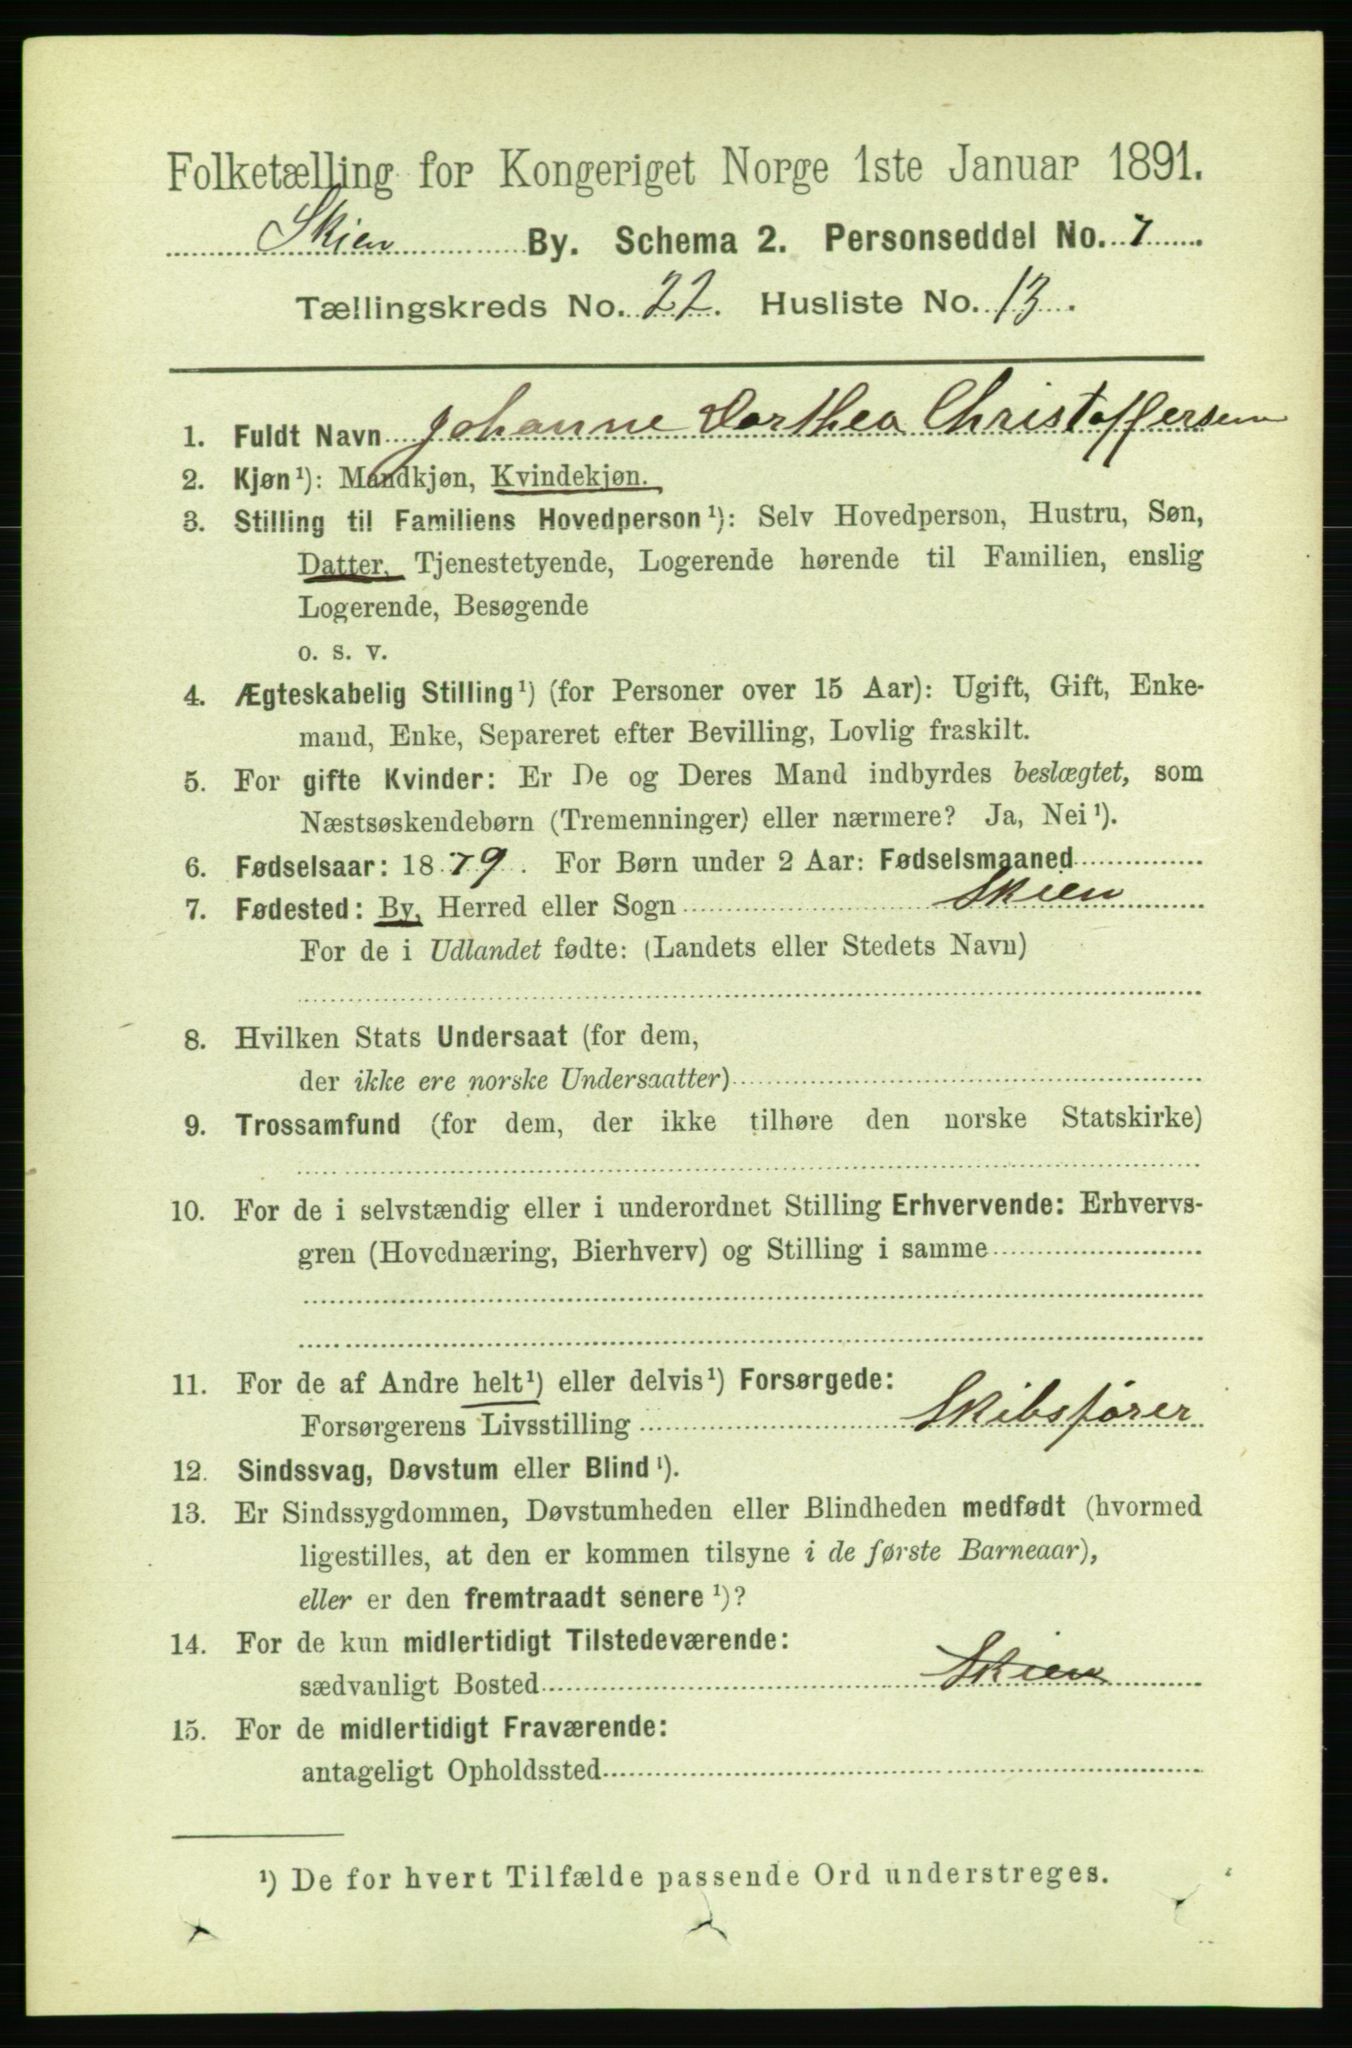 Folketælling for Kongeriget Norge 1ste Januar 1891.
Skien By. Schema 2. Personseddel No. 7
Tællingskreds No. 22. Husliste No. 13.
1. Fuldt Navn Johanne Dorthea Christoffersen
2. Kjøn¹): Mandkjøn, Kvindekjøn.
3. Stilling til Familiens Hovedperson¹): Selv Hovedperson, Hustru, Søn,
Datter, Tjenestetyende, Logerende hørende til Familien, enslig
Logerende, Besøgende
o. s. v.
4. Ægteskabelig Stilling¹) (for Personer over 15 Aar): Ugift, Gift, Enke-
mand, Enke, Separeret efter Bevilling, Lovlig fraskilt.
5. For gifte Kvinder: Er De og Deres Mand indbyrdes beslægtet, som
Næstsøskendebørn (Tremenninger) eller nærmere? Ja, Nei¹).
6. Fødselsaar: 1879. For Børn under 2 Aar: Fødselsmaaned
7. Fødested: By, Herred eller Sogn Skien
For de i Udlandet fødte: (Landets eller Stedets Navn)
8. Hvilken Stats Undersaat (for dem,
der ikke ere norske Undersaatter)
9. Trossamfund (for dem, der ikke tilhøre den norske Statskirke)
10. For de i selvstændig eller i underordnet Stilling Erhvervende: Erhvervs-
gren (Hovednæring, Bierhverv) og Stilling i samme
11. For de af Andre helt¹) eller delvis¹) Forsørgede:
Forsørgerens Livsstilling Skibsfører
12. Sindssvag, Døvstum eller Blind¹).
13. Er Sindssygdommen, Døvstumheden eller Blindheden medfødt (hvormed
ligestilles, at den er kommen tilsyne i de første Barneaar),
eller er den fremtraadt senere¹)?
14. For de kun midlertidigt Tilstedeværende:
sædvanligt Bosted Skien
15. For de midlertidigt Fraværende:
antageligt Opholdssted
¹) De for hvert Tilfælde passende Ord understreges.